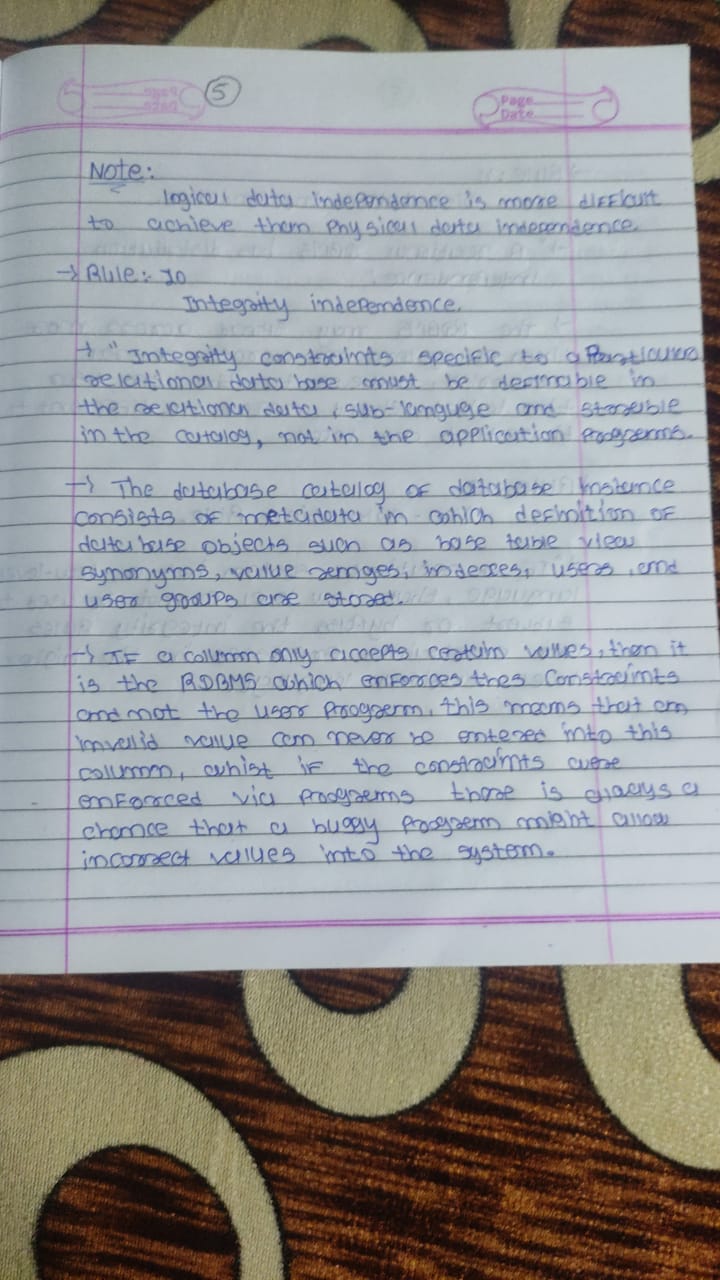 5
Page
Date
Note:
logical data independance is more difficult
to achieve then physical data independence.
→ Rule: 10
Integrity independence.
→ " Integrity constraints specific to a Particular
relational data base must be desirable in
the relational data, sub-languge and storeible
in the catalog, not in the application Programs.
→ The database catalog of database instance
consists of metadata in which definition of
data base objects such as base table view
synonyms, value ranges, indexes, users, and
user groups are stored.
→ If a column only accepts certain values, then it
is the RDBMS which enforces thes Constraints
and not the user Program, this means that an
invalid value can never be entered into this
column, whist if the constraints were
enforced via Programs there is always a
chance that a buggy Program might allow
incorrect values into the system.